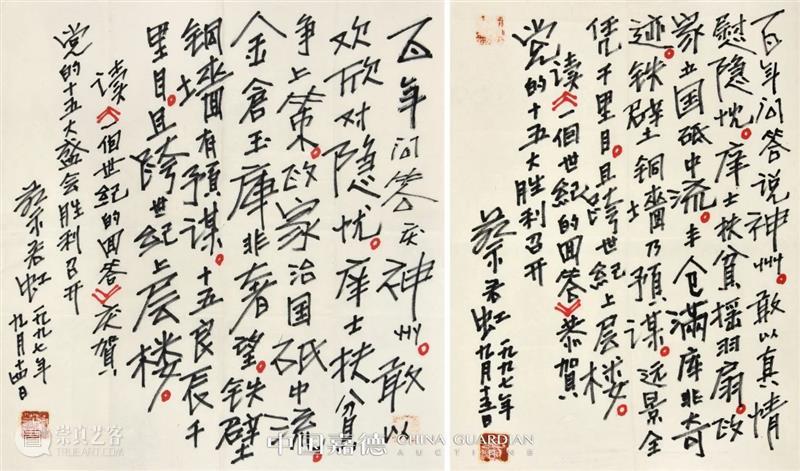 百年问答庆神州。敢以
欢欣对隐忧。庠士扶貧
争上策。政家治国砥中流。
金倉玉庫非奢望。铁壁
铜墙有預谋。十五良辰千
里目。且跨世纪上层楼。
读《一個世纪的回答》庆賀
党的十五大盛会胜利召开
蔡若虹 一九九七年
九月十四日
百年问答说神州。敢以真情
慰隐忧。庠士扶貧摇羽扇。政
家立国砥中流。丰仓满库非奇
迹。铁壁铜墙乃預谋。远景全
凭千里目。且跨世纪上层楼。
读《一個世纪的回答》恭賀
党的十五大胜利召开
蔡若虹 一九九七年
九月十五日
崇真艺客
中国嘉德
CHINA GUARDIAN
AUCTIONS